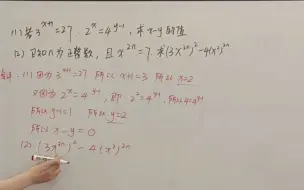 (1) 若 3^{x+1}=27, 2^x=4^{y-1}, 求 x-y 的值
(2) 已知 n 为正整数, 且 x^{2n}=7. 求 (3x^{3n})^2-4(x^2)^{2n}
(1) 因为 3^{x+1}=27 所以 x+1=3 所以 x=2
又因为 2^x=4^{y-1}, 即 2^2=4^{y-1}, 所以 4=4^{y-1}
所以 y-1=1 所以 y=2
所以 x-y=0
(2) (3x^{3n})^2-4(x^2)^{2n}